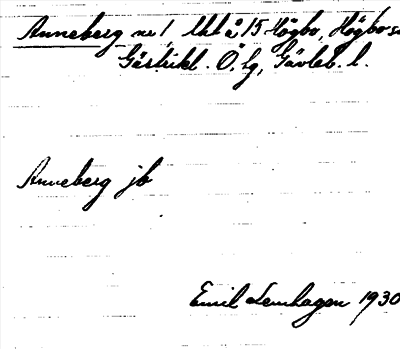 Anneberg nr 1 Uht å 15 Högbo, Högbo sn
Gästrikl. Ö. tg, Gävleb. l.
Anneberg jb
Emil Lenhagen 1930